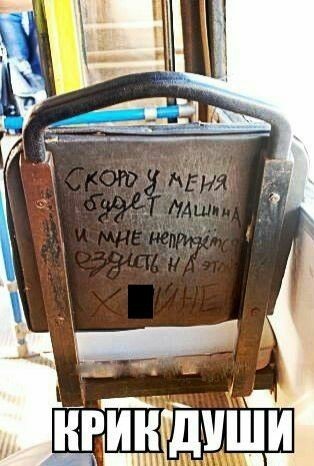 Скоро у меня
будет машина
и мне непридётся
ездить на этой
Х■ЙНЕ
КРИК ДУШИ